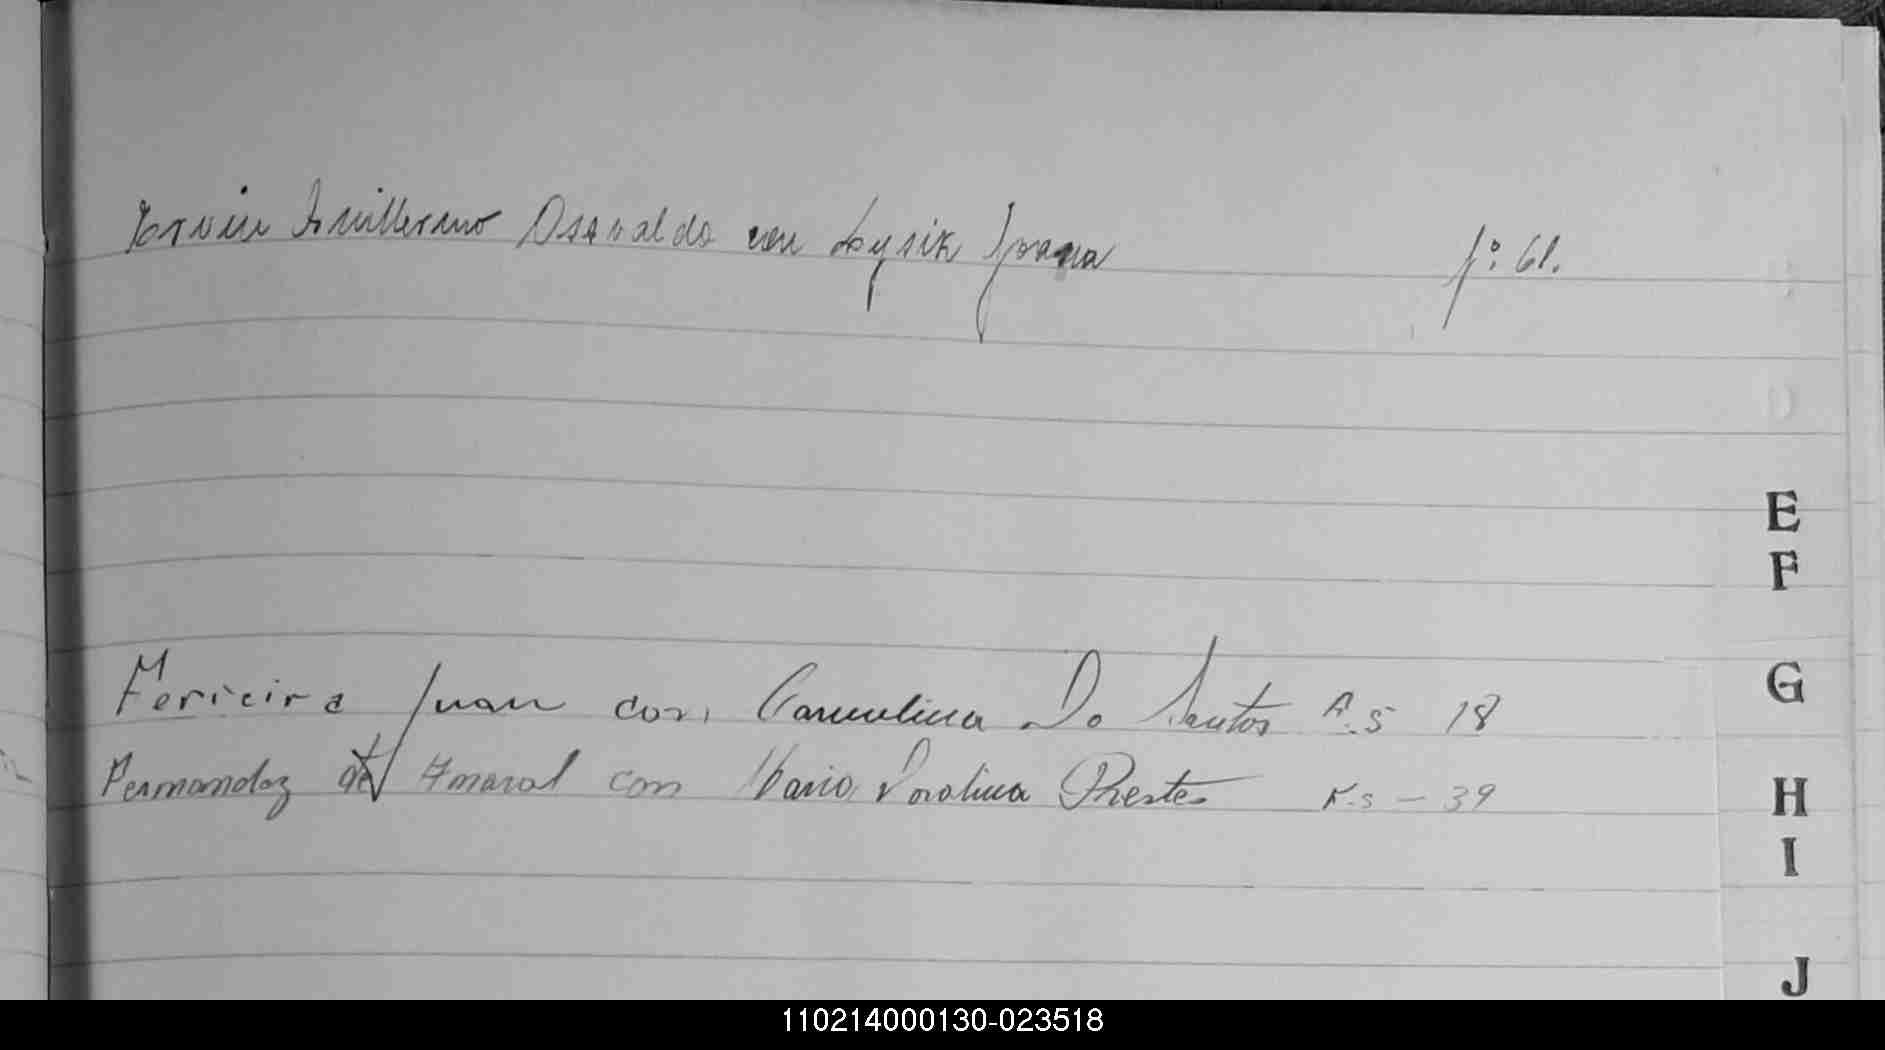 Ervin Guillermo Osvaldo con Lysik Juana fº. 61.
E
F
Ferreira Juan con Carmelina Do Santos F.s 18
G
Fernandez de Amaral con Maria Carolina Prestes F.s - 39
H
I
J
110214000130-023518